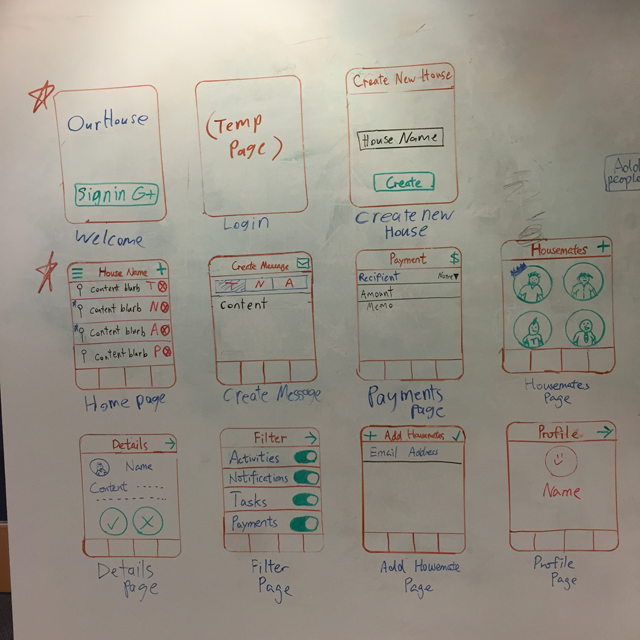 OurHouse
Sign in G+
Welcome
(Temp
Page)
Login
Create New House
House Name
Create
Create new
House
Add
people
House Name +
content blurb T
content blurb N
content blurb A
content blurb P
Home page
Create Message
T N A
Content
Create Message
Payment $
Recipient Name▼
Amount
Memo
Payments
page
Housemates +
Housemates
Page
Details →
Name
Content
Details
page
Filter →
Activities
Notifications
Tasks
Payments
Filter
Page
+ Add Housemates ✓
Email Address
Add Housemate
Page
Profile →
Name
Profile
Page